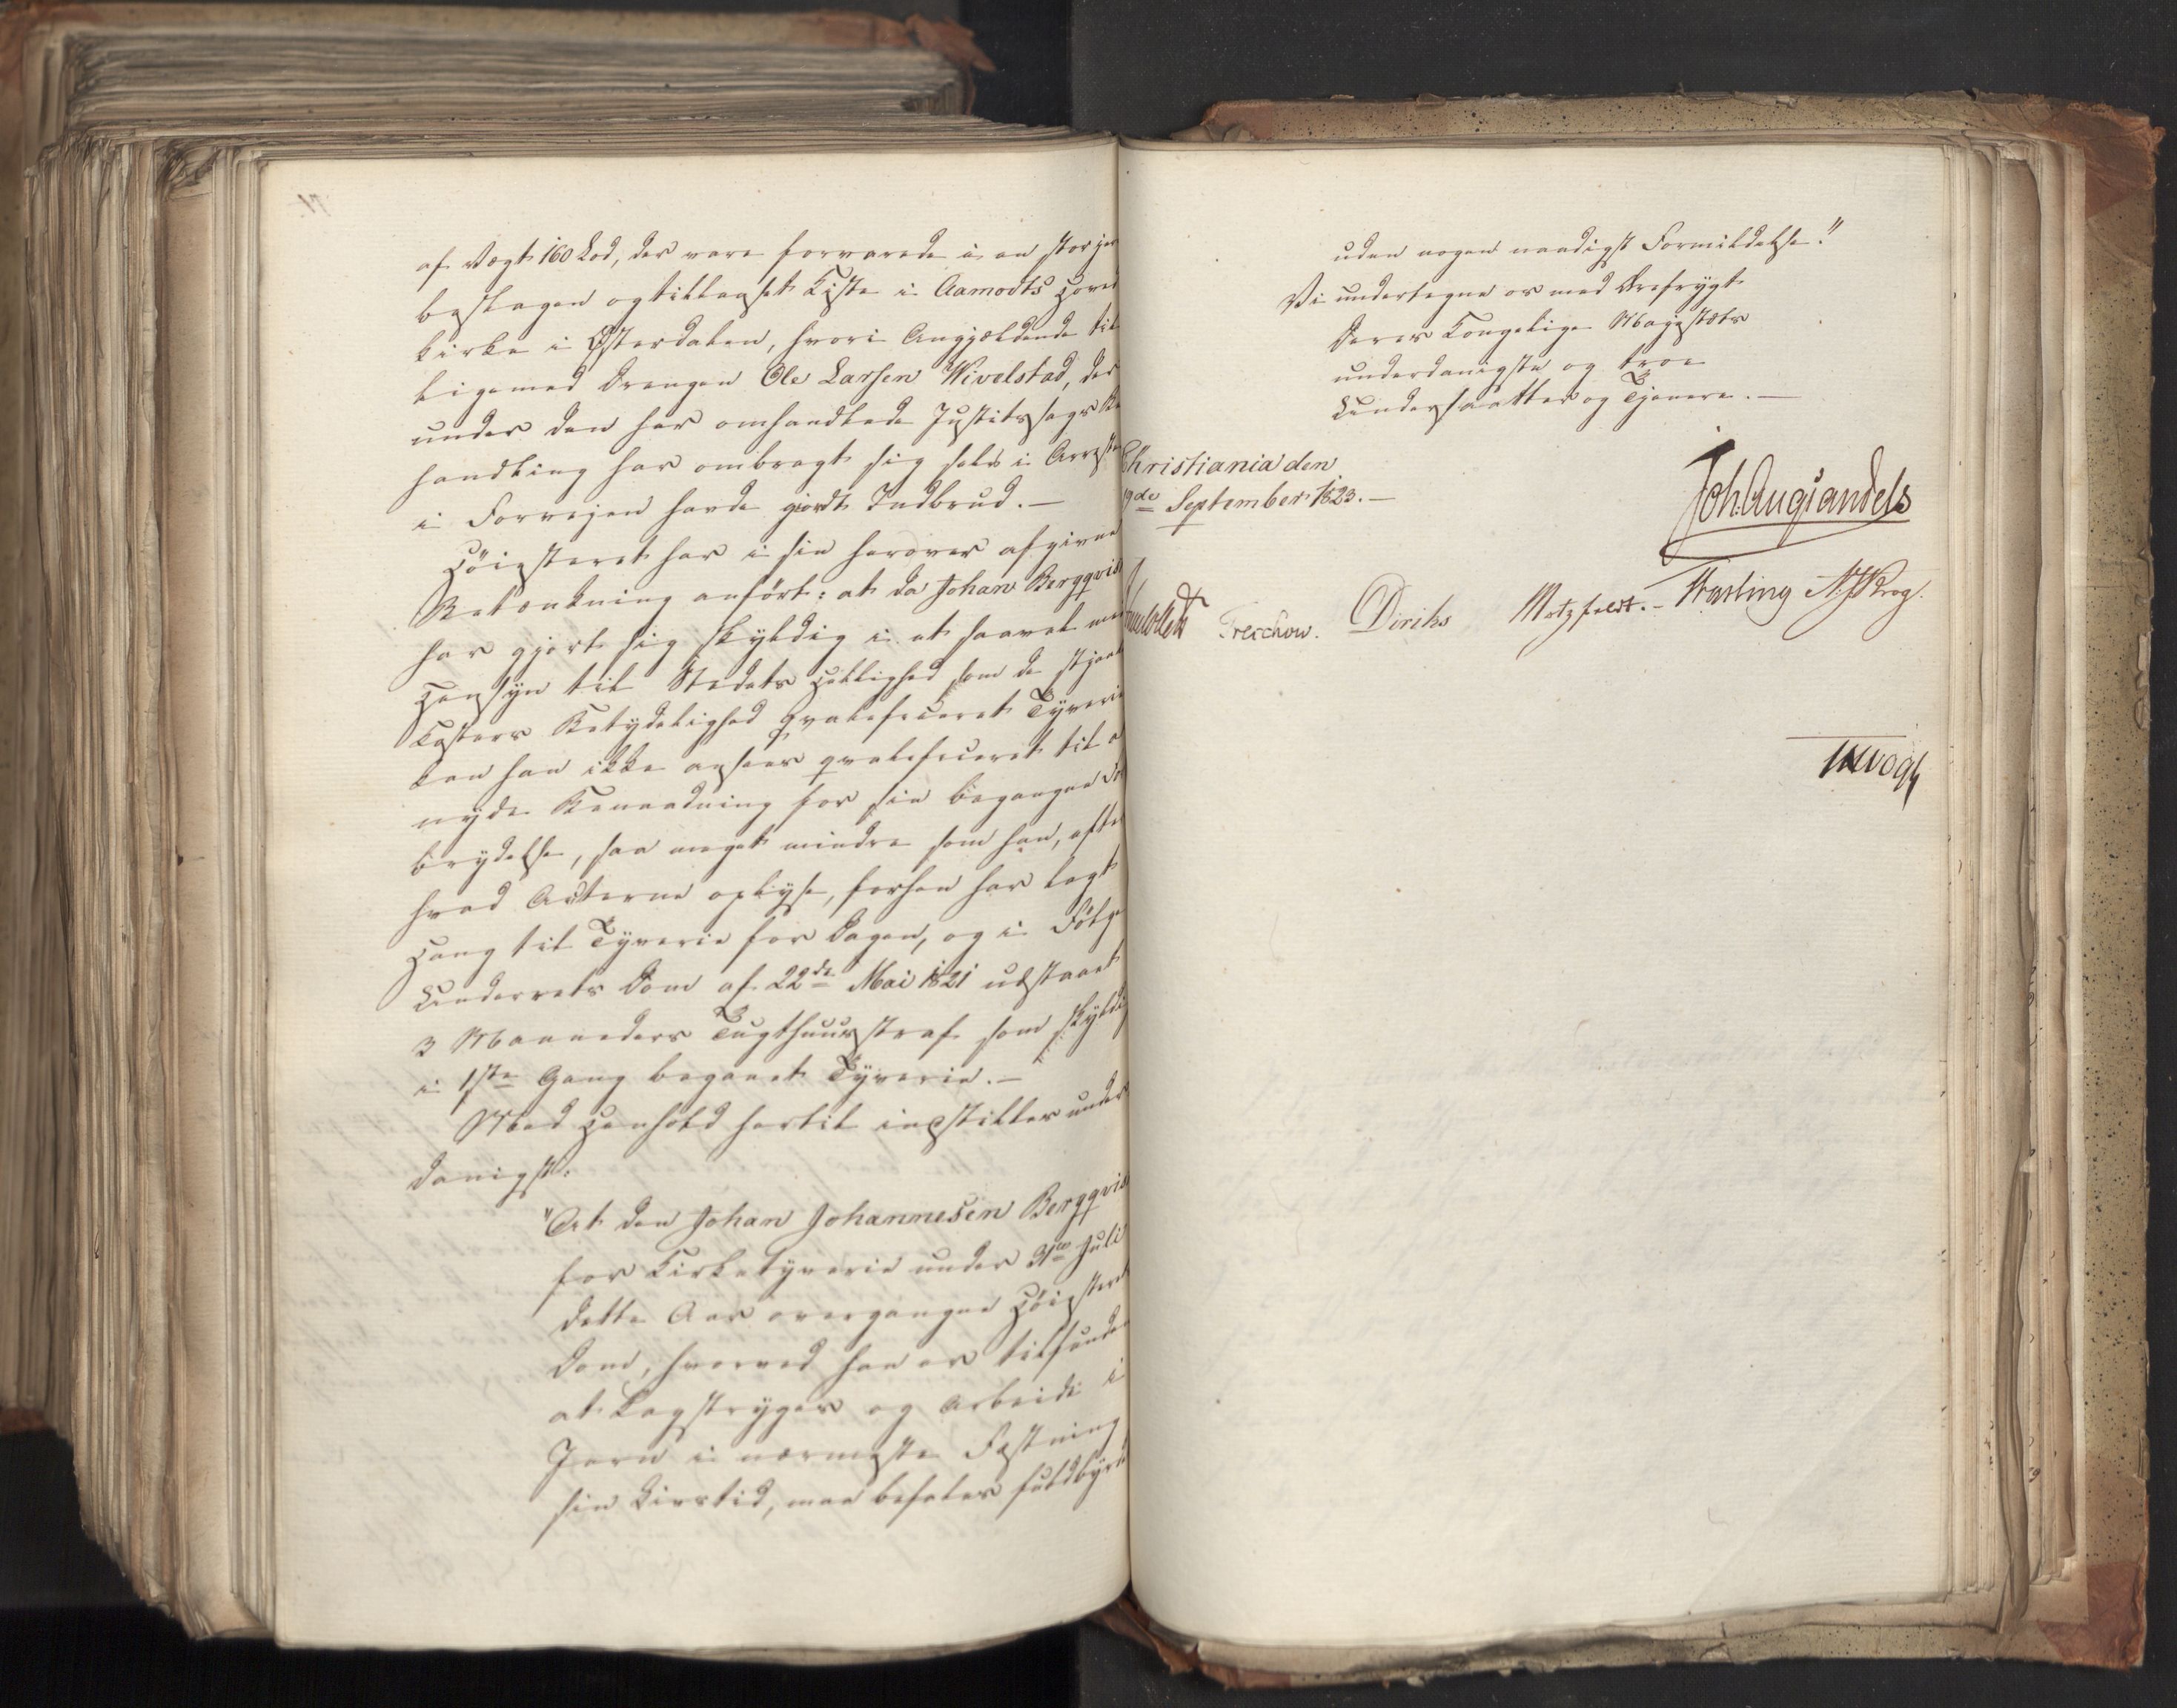 af Vægt 160 Lod, der vare forvarede i en stor jern
beslagen og tillaaset Kiste i Aamodts Hoved
kirke i Østerdalen, hvori Angjældende til
ligemed Drengen Ole Larsen Wivelstad, der
under den her omhandlede Justitssags Be
handling har ombragt sig selv i Arresten
i Forvejen havde gjordt Indbrud. —
Høiesteret har i sin herover afgivne
Betænkning anført: at da Johan Bergqvist
har gjort sig skyldig i et saavel med
Hensyn til Stedets Hellighed som de stjaalne
Kosters Betydelighed qvalificeret Tyverie
kan han ikke ansees qvalificeret til at
nyde Benaadning for sin begangne For
brydelse, saa meget mindre som han, efter
hvad Acterne oplyse, forhen har lagt
Hang til Tyverie for Dagen, og i Følge
Underrets Dom af 22de Mai 1821 udstaaet
3 Maaneders Tugthuusstraf som skyldig
i 1ste Gang begaaet Tyverie. —
Med Henhold hertil indstilles under
danigst:
"At den Johan Johannesen Bergqvist
for Kirketyverie under 31te Juli
dette Aar overgangne Høiesterets
Dom, hvorved han er tilfunden
at Kagstryges og arbeide i
Jern i nærmeste Fæstning
sin Livstid, maa befales fuldbyrdet
uden nogen naadigst Formildelse."
Vi undertegne os med Ærefrygt
Deres Kongelige Majestæts
underdanigste og troe
Undersaatter og Tjenere. —
Christiania den
19de September 1823. —
Joh. Aug. Sandels
Treschow. Diriks Motzfeldt. — Fasting N. J. Krog.
Vogt